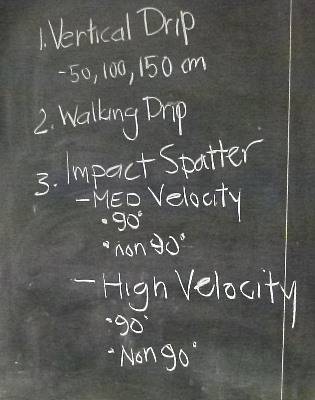 1. Vertical Drip
-50, 100, 150 cm
2. Walking Drip
3. Impact Spatter
- MED Velocity
• 90°
• non 90°
- High Velocity
• 90°
• Non 90°